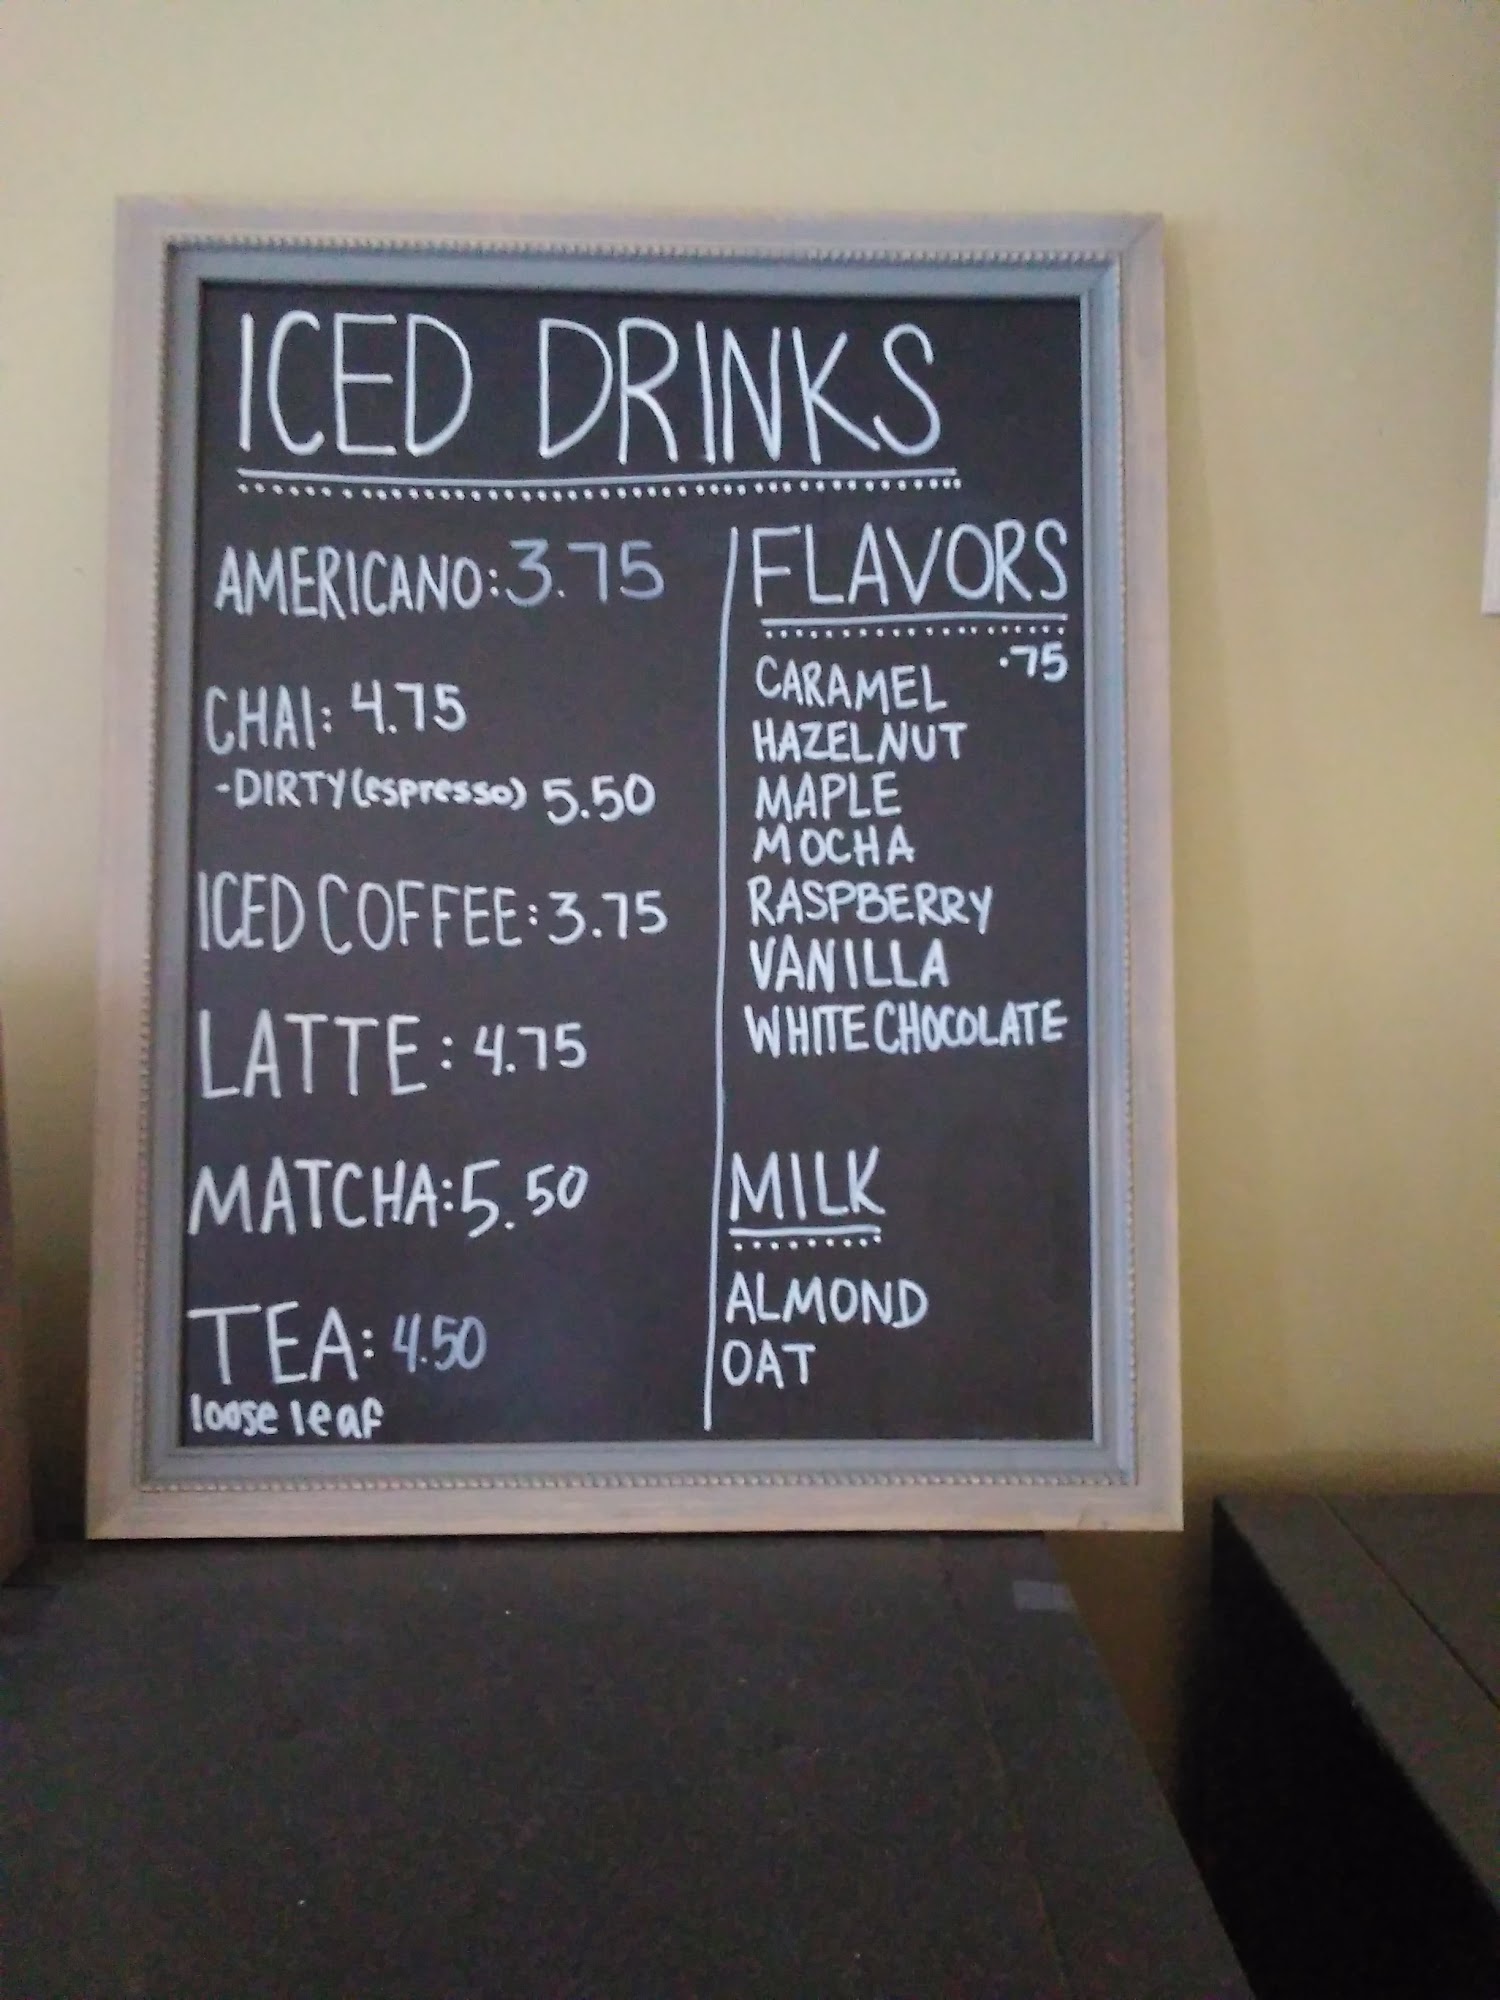 ICED DRINKS
AMERICANO: 3.75
CHAI: 4.75
-DIRTY (espresso) 5.50
ICED COFFEE: 3.75
LATTE: 4.75
MATCHA: 5.50
TEA: 4.50
loose leaf
FLAVORS
.75
CARAMEL
HAZELNUT
MAPLE
MOCHA
RASPBERRY
VANILLA
WHITE CHOCOLATE
MILK
ALMOND
OAT